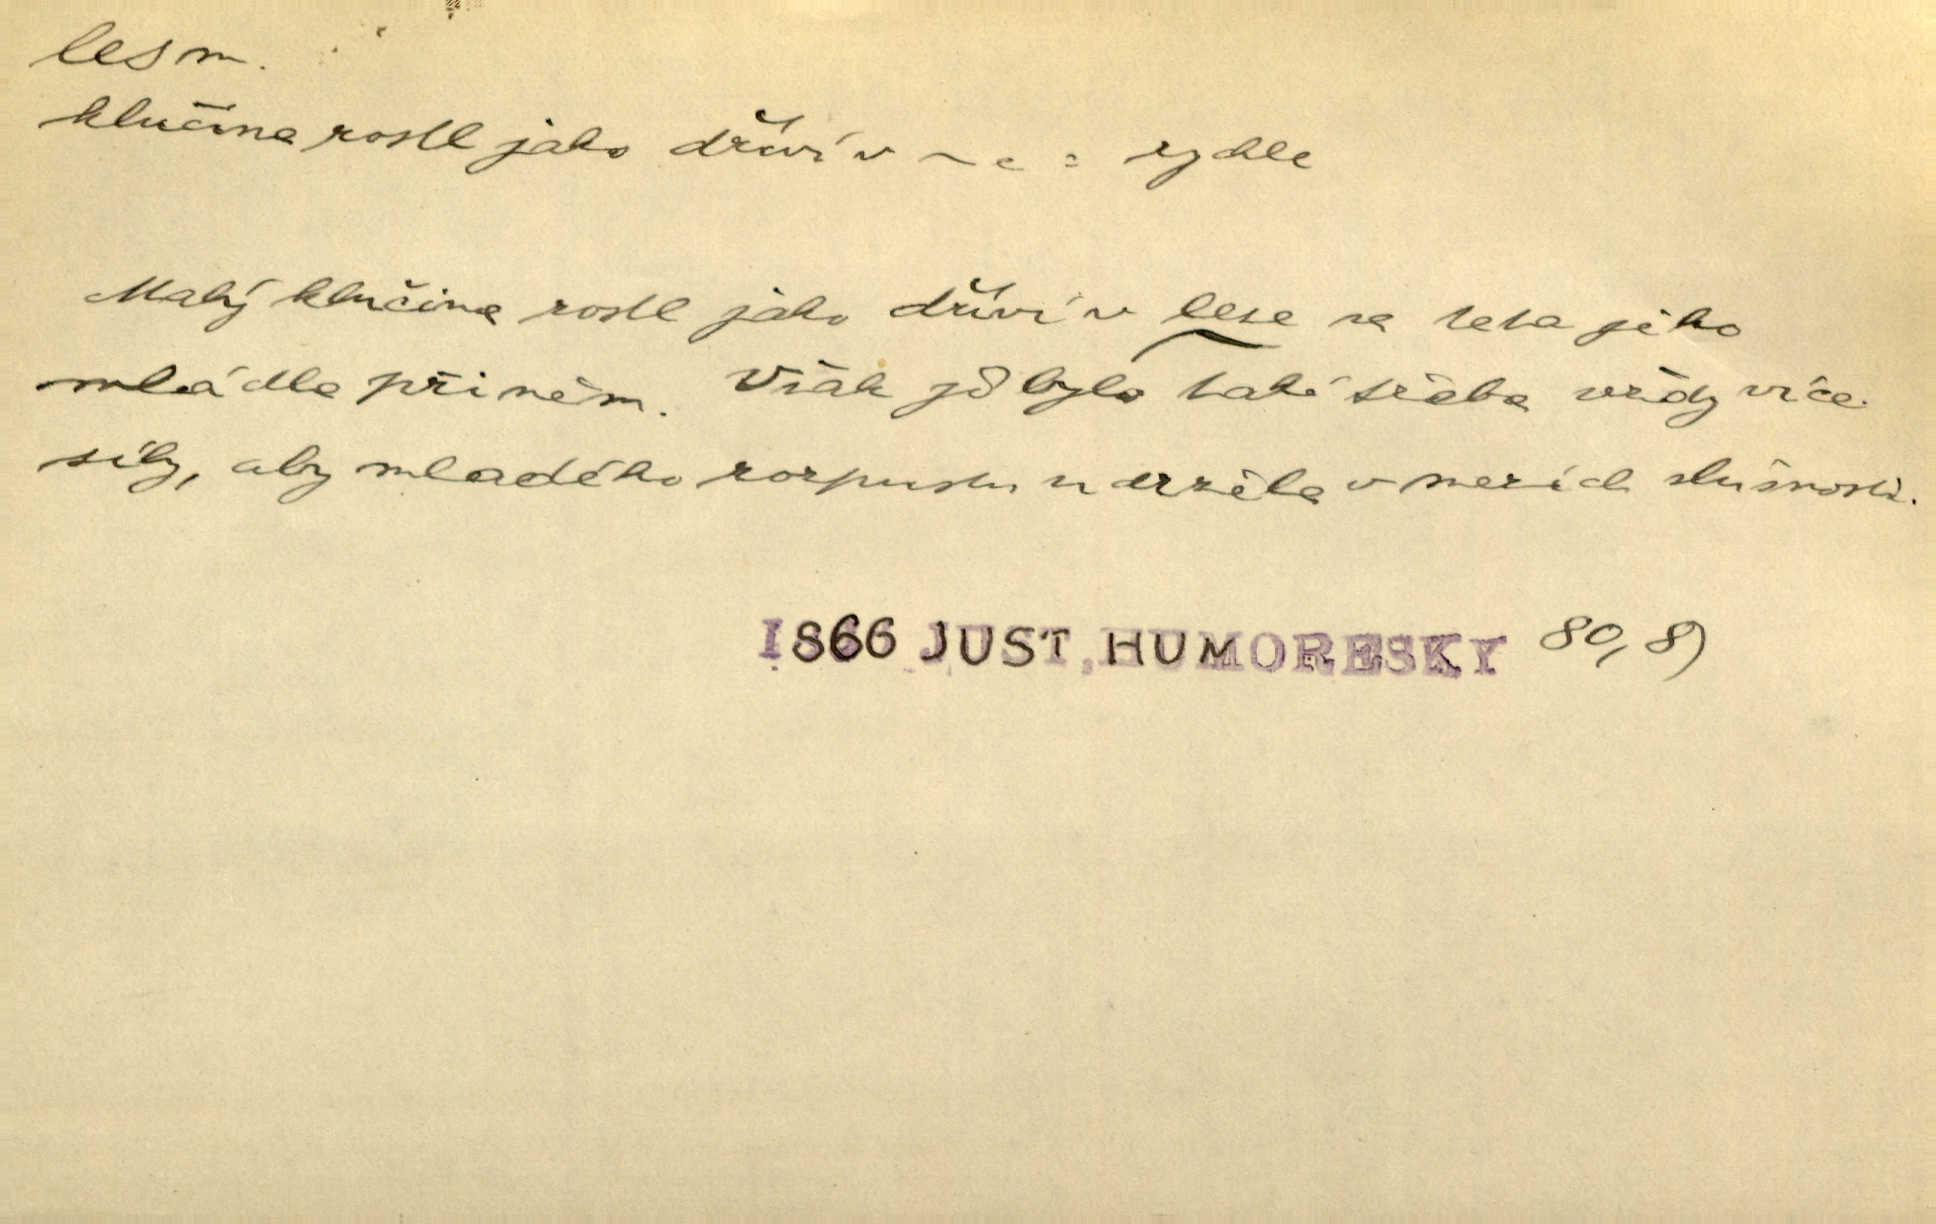 les m.
klučina rostl jako dříví v ~ e = rychle
Malý klučina rostl jako dříví v lese a teta jeho
mládla při něm. Však jí bylo také třeba vždy více
síly, aby mladého rozpustu udržela v mezích slušnosti.
1866 JUST, HUMORESKY 80, 8)